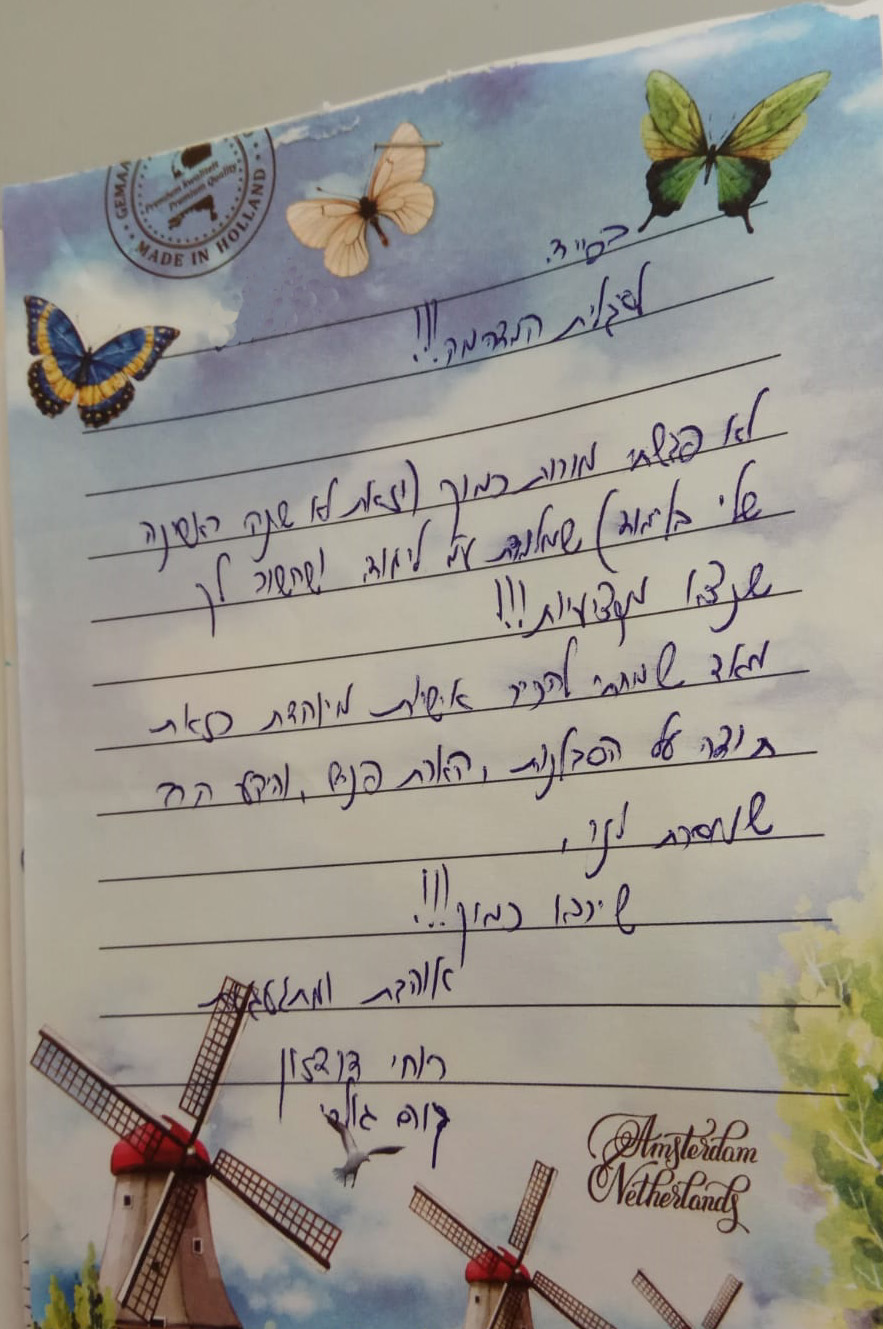 GEMAA
Premium kwaliteit
Premium Quality
MADE IN HOLLAND
בס״ד.
לסגלית המדהימה!!!
לא פגשתי מורות כמוך (וזאת לא שנה ראשונה
שלי בלימוד) שמלמדת עם לימוד ושחשוב לך
שנצא מקצועיות!!!
מאד שמחתי להכיר אישיות מיוחדת כזאת
תודה על הסבלנות, הארת פנים, והידע הרב
שמסרת לנו,
שירבו כמוך!!!
אוהבת ומתגעגעת
רוחי דוידזון
קורס
Amsterdam
Netherlands